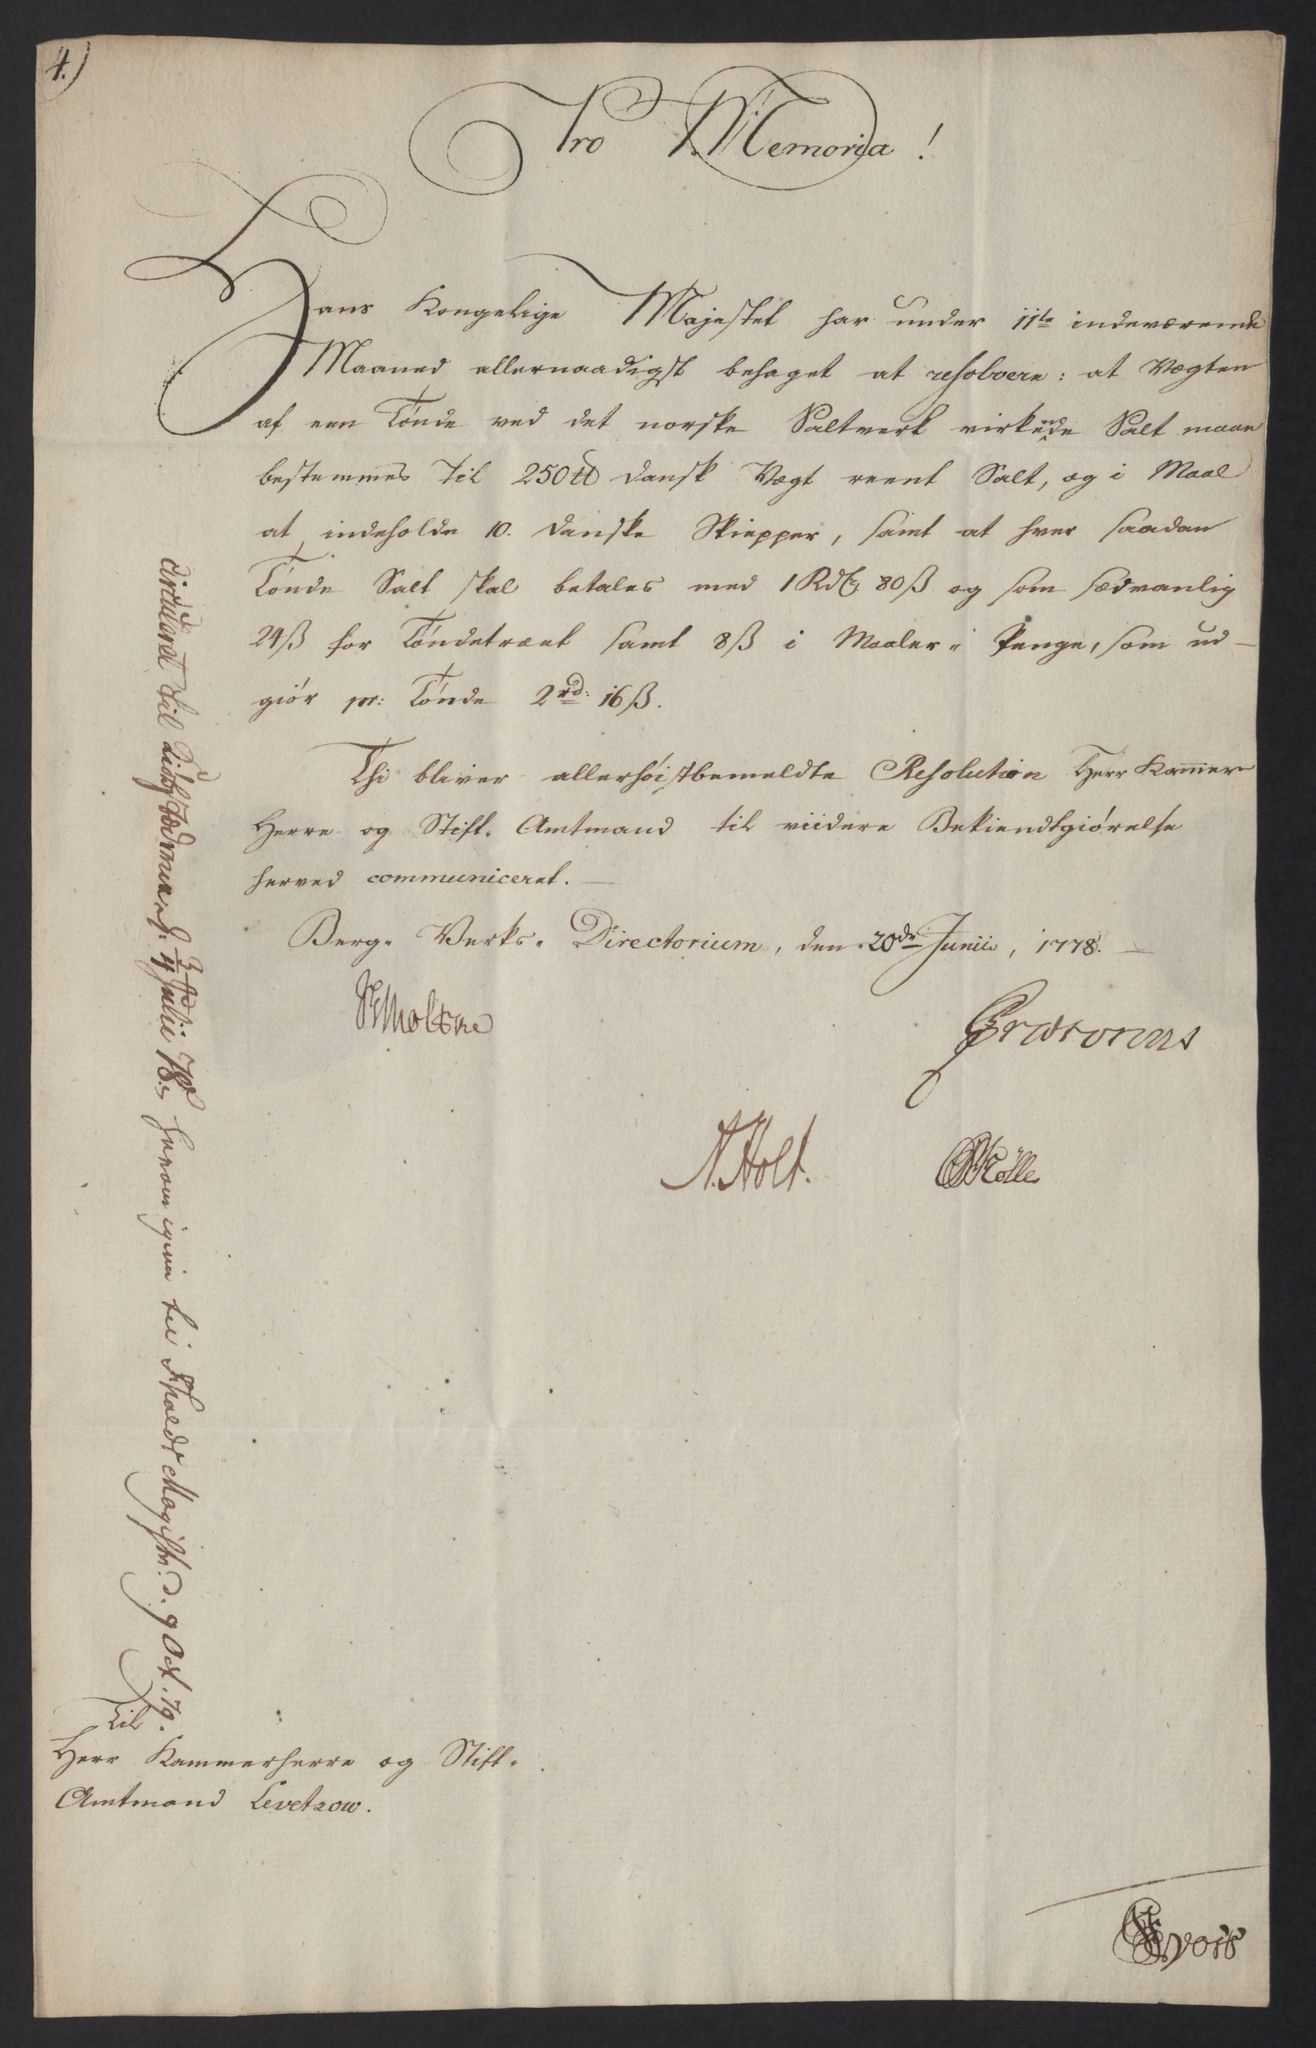 4.)
Pro Memoria!
Hans Kongelige Majestet har under 11te indeværende
Maaned allernaadigst behaget at resolvere: at Vægten
af een Tönde ved det norske Saltverk virkende Salt maae
bestemmes til 250 ℔ dansk Vægt reent Salt, og i Maal
at indeholde 10. danske Skiepper, samt at hver saadan
Tönde Salt skal betales med 1 Rdlr 80 ß og som sædvanlig
24 ß for Töndetræet samt 8 ß i Maaler-Penge, som ud-
giör pr: Tönde 2rd: 16 ß.
Thi bliver allerhöistbemeldte Resolution Herr Kammer-
Herre og Stift-Amtmand til viidere Bekiendtgiörelse
herved communiceret.
Berg-Verks-Directorium, den 20de Junii, 1778.
N. Holt.
Til
Herr Kammerherre og Stift-
Amtmand Levetzow.
Julii 78. herom igien til Magistr. d. 9 Oct. 79.